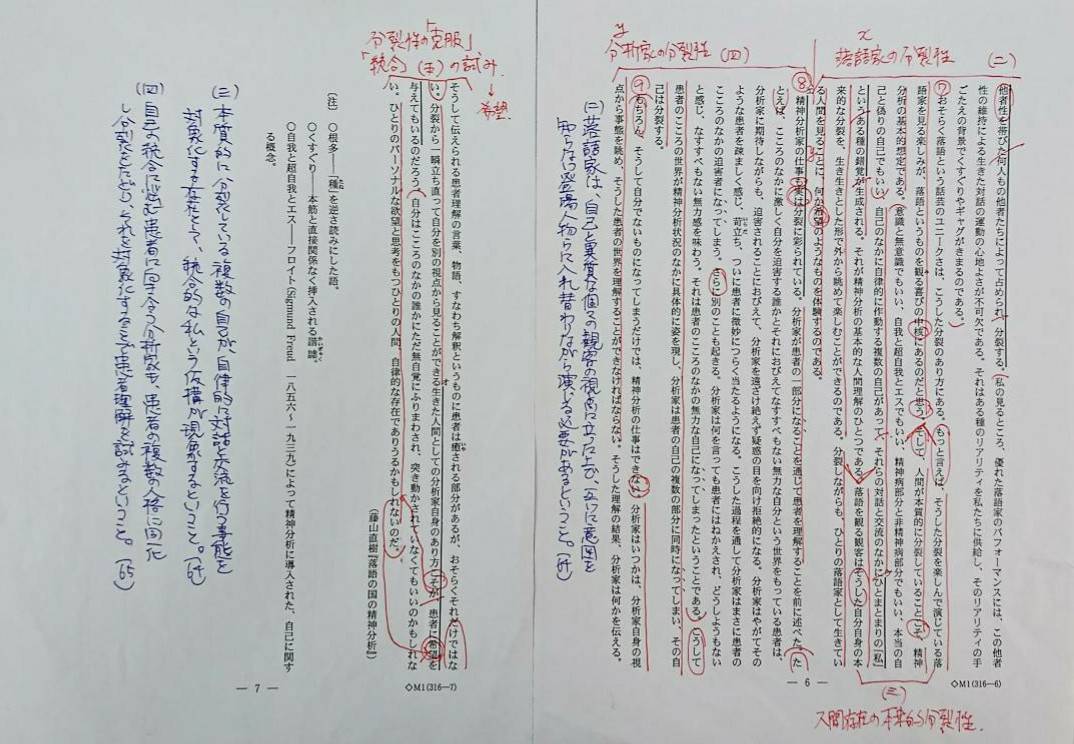 落語家の分裂性 (二)
x
他者性を帯びた何人もの他者たちによって占められ、分裂する。私の見るところ、優れた落語家のパフォーマンスには、この他者
性の維持による生きた対話の運動の心地よさが不可欠である。それはある種のリアリティを私たちに供給し、そのリアリティの手
ごたえの背景でくすぐりやギャグがきまるのである。
⑦おそらく落語という話芸のユニークさは、こうした分裂のあり方にある。もっと言えば、そうした分裂を楽しんで演じている落
語家を見る楽しみが、落語というものを観る喜びの中核にあるのだと思う。そして、人間が本質的に分裂していることこそ、精神
分析の基本的想定である。意識と無意識でもいい、自我と超自我とエスでもいい、精神病部分と非精神病部分でもいい、本当の自
己と偽りの自己でもいい、自己のなかに自律的に作動する複数の自己があって、それらの対話と交流のなかにひとまとまりの「私」
というある種の錯覚が生成される。それが精神分析の基本的な人間理解のひとつである。落語を観る観客はそうした自分自身の本
来的な分裂を、生き生きとした形で外から眺めて楽しむことができるのである。分裂しながらも、ひとりの落語家として生きてい
る人間を見ることに、何か希望のようなものを体験するのである。
(三)
人間存在の本来的分裂性
y
分析家の分裂性 (四)
⑧精神分析家の仕事も実は分裂に彩られている。分析家が患者の一部分になることを通じて患者を理解することを前に述べた。た
とえば、こころのなかに激しく自分を迫害する誰かとそれにおびえてなすすべもない無力な自分という世界をもっている患者は、
分析家に期待しながらも、迫害されることにおびえて、分析家を遠ざけ絶えず疑惑の目を向け拒絶的になる。分析家はやがてその
ような患者を疎ましく感じ、苛立ち、ついに患者に微妙につらく当たるようになる。こうした過程を通して分析家はまさに患者の
こころのなかの迫害者になってしまう。さらに別のことも起きる。分析家は何を言っても患者にはねかえされ、どうしようもない
と感じ、なすすべもない無力感を味わう。それは患者のこころのなかの無力な自己になってしまったということである。こうして
患者のこころの世界が精神分析状況のなかに具体的に姿を現し、分析家は患者の自己の複数の部分に同時になってしまい、その自
己は分裂する。
⑨もちろん、そうして自分でないものになってしまうだけでは、精神分析の仕事はできない。分析家はいつかは、分析家自身の視
点から事態を眺め、そうした患者の世界を理解することができなければならない。そうした理解の結果、分析家は何かを伝える。
(二)落語家は、自己と異質な個々の観客の視点に立つに及び、互いに意図を
知らない登場人物らに入れ替わりながら演じる必要があるということ。
— 6 —
◇M1(316—6)
分裂性の「克服」
「統合」(五)の試み
→希望
そうして伝えられる患者理解の言葉、物語、すなわち解釈というものに患者は癒される部分があるが、おそらくそれだけではな
い。分裂から一瞬立ち直って自分を別の視点から見ることができる生きた人間としての分析家自身のあり方こそが、患者に希望を
与えてもいるのだろう。自分はこころのなかの誰かにただ無自覚にふりまわされ、突き動かされていなくてもいいのかもしれな
い。ひとりのパーソナルな欲望と思考をもつひとりの人間、自律的な存在でありうるかもしれないのだ。
(藤山直樹『落語の国の精神分析』)
(注) ○根多——「種」を逆さ読みにした語。
○くすぐり——本筋と直接関係なく挿入される諧謔。
○自我と超自我とエス——フロイト(Sigmund Freud 一八五六〜一九三九)によって精神分析に導入された、自己に関す
る概念。
(三)本質的に分裂している複数の自己が、自律的に対話と交流を行う事態を
対象化する存在として、統合的な私という仮構が現象するということ。
(四)自己の統合に悩む患者に向き合う分析家も、患者の複数の人格に同化
し分裂をたどり、それを対象化することで患者理解を試みるということ。(65)
— 7 —
◇M1(316—7)